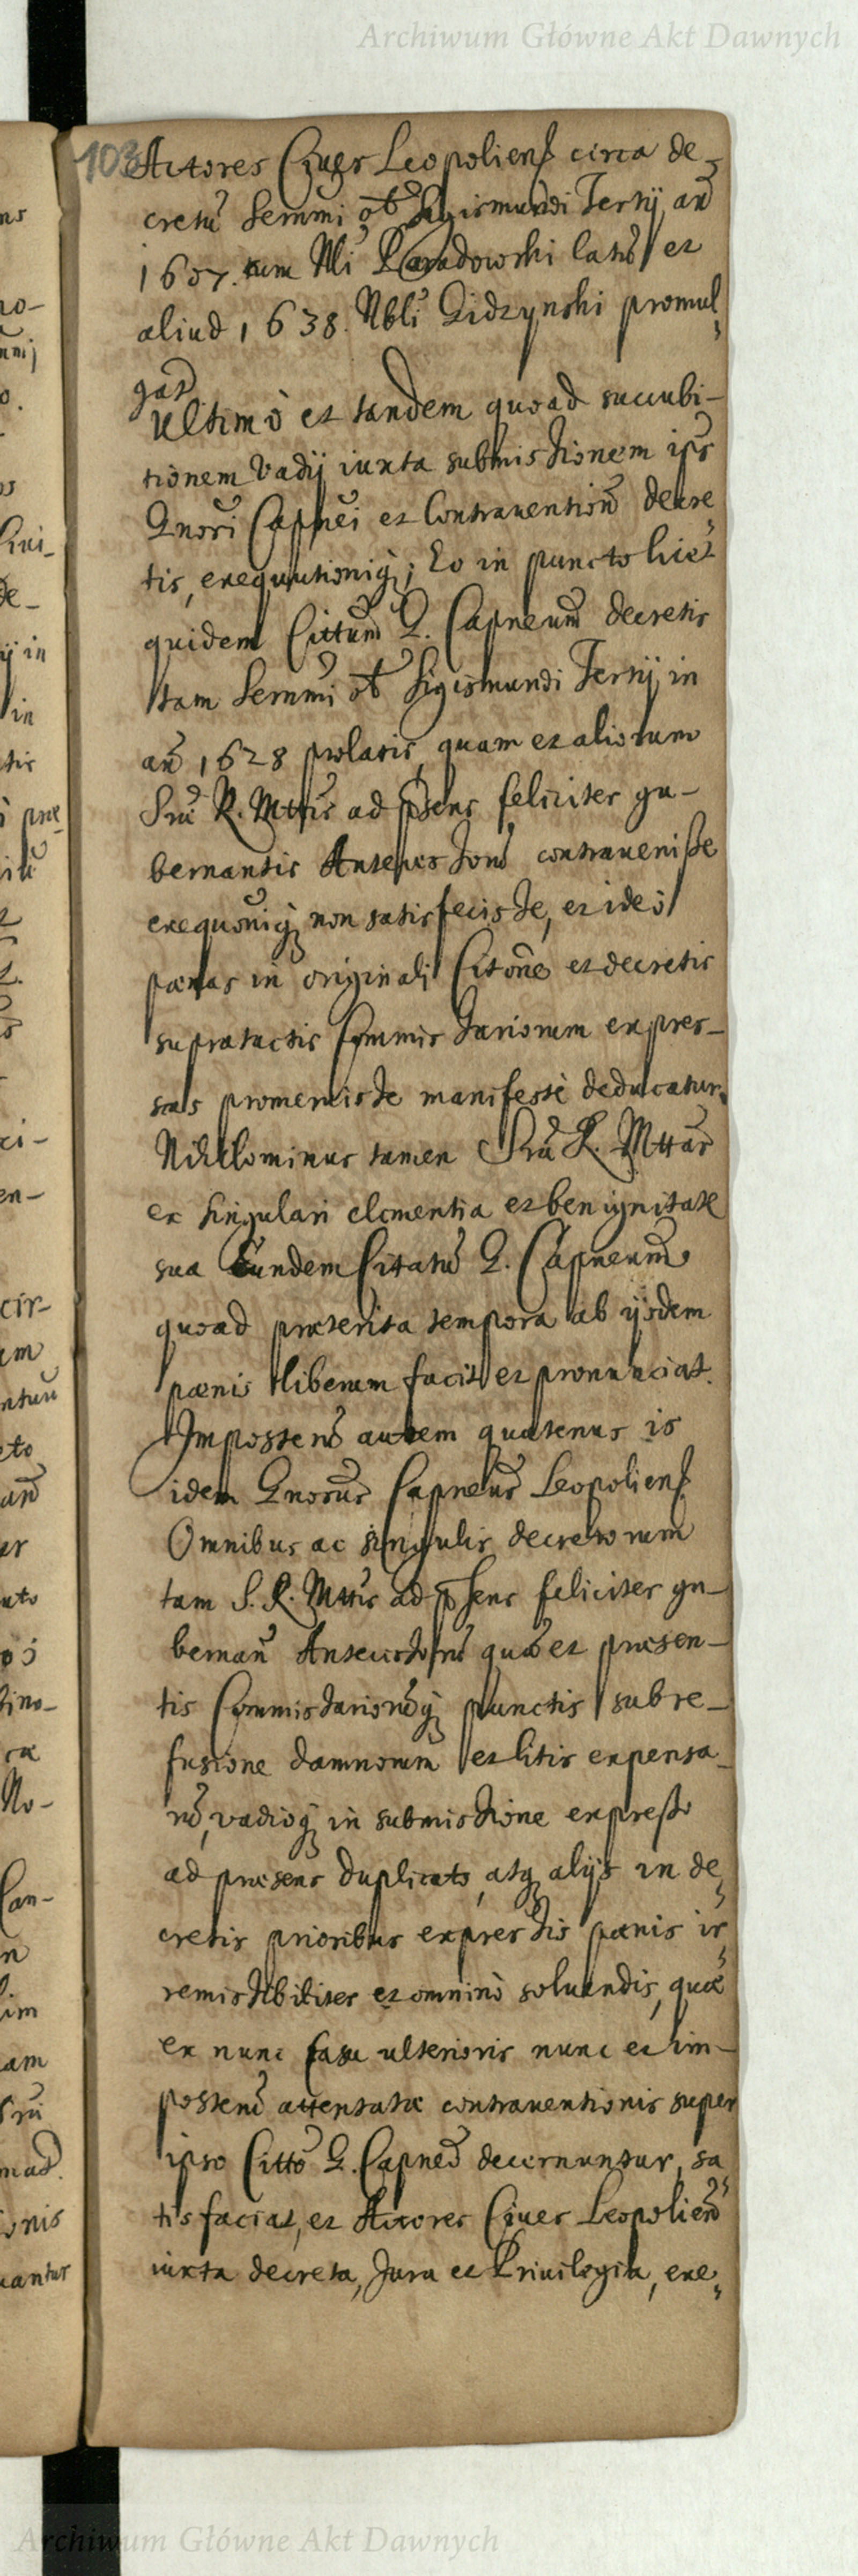 Archiwum Główne Akt Dawnych
103
Actores Ciues Leopoliens circa de-
cretũ Sermmi ol̃ Sigismundi Tertij añ
1607. cum Mĩ latũ et
aliud 1638. Nblĩ Zidzynski promul
gat̃
Ultimò et tandem quoad succubi-
tionem Vadij iuxta submissionem ipsĩ
Gnori Capnei et Contrauentionẽ decre
tis, exequutioniq̃; Eo in puncto licet
quidem Cittum G. Capneum decretis
tam Sermmi ol̃ Sigismundi Tertij in
añ 1628 prolatis, quam et aliorum
Srae R. Mttis ad p̃sens feliciter gu-
bernantis Antecessorũ contrauenisse
exequõniq̃ non satisfecisse, et ideò
pænas in originali Citõne et decretis
supratactis Commissariorum expres-
sas promeruisse manifestè deducatur.
Nihilominus tamen Sra R. Mttas
ex singulari clementia et benignitate
sua Eundem Citatũ G. Capneum
quoad præterita tempora ab ijsdem
pænis liberum facit et pronunciat.
Imposterũ autem quatenus is
idem Gnosus Capneus Leopoliens
Omnibus ac singulis decretorum
tam S. R. Mttis ad p̃sens feliciter gu-
bernañ Antecessorũ quã et præsen-
tis Commissariorũq̃ punctis sub re-
fusione damnorum et litis expensa-
rũ, vadioq̃ in submissione expresso
ad præsens duplicato, atq̃ alijs in de
cretis prioribus expressis pænis ir
remissibiliter et omninò soluendis, quæ
ex nunc casu ulterioris nunc et im-
posterũ attentatæ contrauentionis super
ipso Cittõ G. Capneõ decernuntur, sa
tisfaciat, et Actores Ciues Leopolieñ
iuxta decreta, Jura et Priuilegia, exe
Archiwum Główne Akt Dawnych